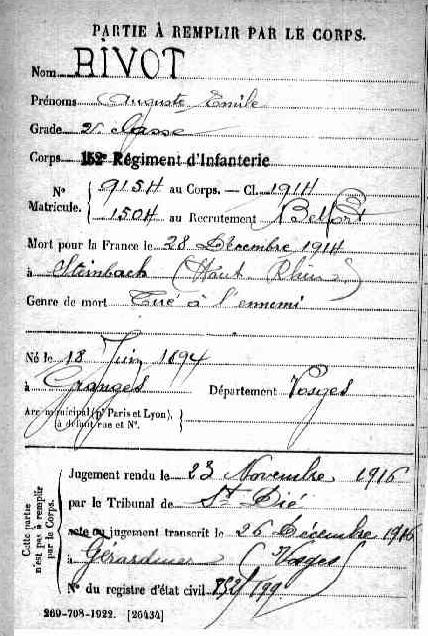 PARTIE À REMPLIR PAR LE CORPS.
Nom RIVOT
Prénoms Auguste Emile
Grade 2e Classe
Corps 152e Régiment d'Infanterie
N° Matricule. { 9154 au Corps. — Cl. 1914
1504 au Recrutement Belfort
Mort pour la France le 28 Décembre 1914
à Steinbach (Haut Rhin)
Genre de mort Tué à l'ennemi
Né le 18 Juin 1894
à Granges Département Vosges
Arr. municipal (pr Paris et Lyon),
(à défaut rue et N°.
Cette partie n'est pas à remplir par le Corps.
Jugement rendu le 23 Novembre 1916
par le Tribunal de St Dié
acte ou jugement transcrit le 26 Décembre 1916
à Gérardmer (Vosges)
N° du registre d'état civil 852/199
269-708-1922. [26434]